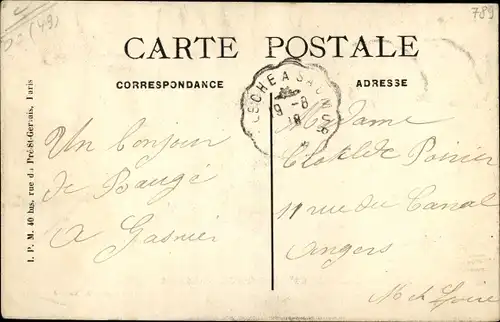 (49)
789
CARTE POSTALE
CORRESPONDANCE
ADRESSE
I. P. M. 40 bis, rue du Pré-St-Gervais, Paris
9-8
18
Un Bonjour
de Baugé
A Gasnier
Madame
Clotilde Poirier
11 rue du Canal
Angers
M et Loire